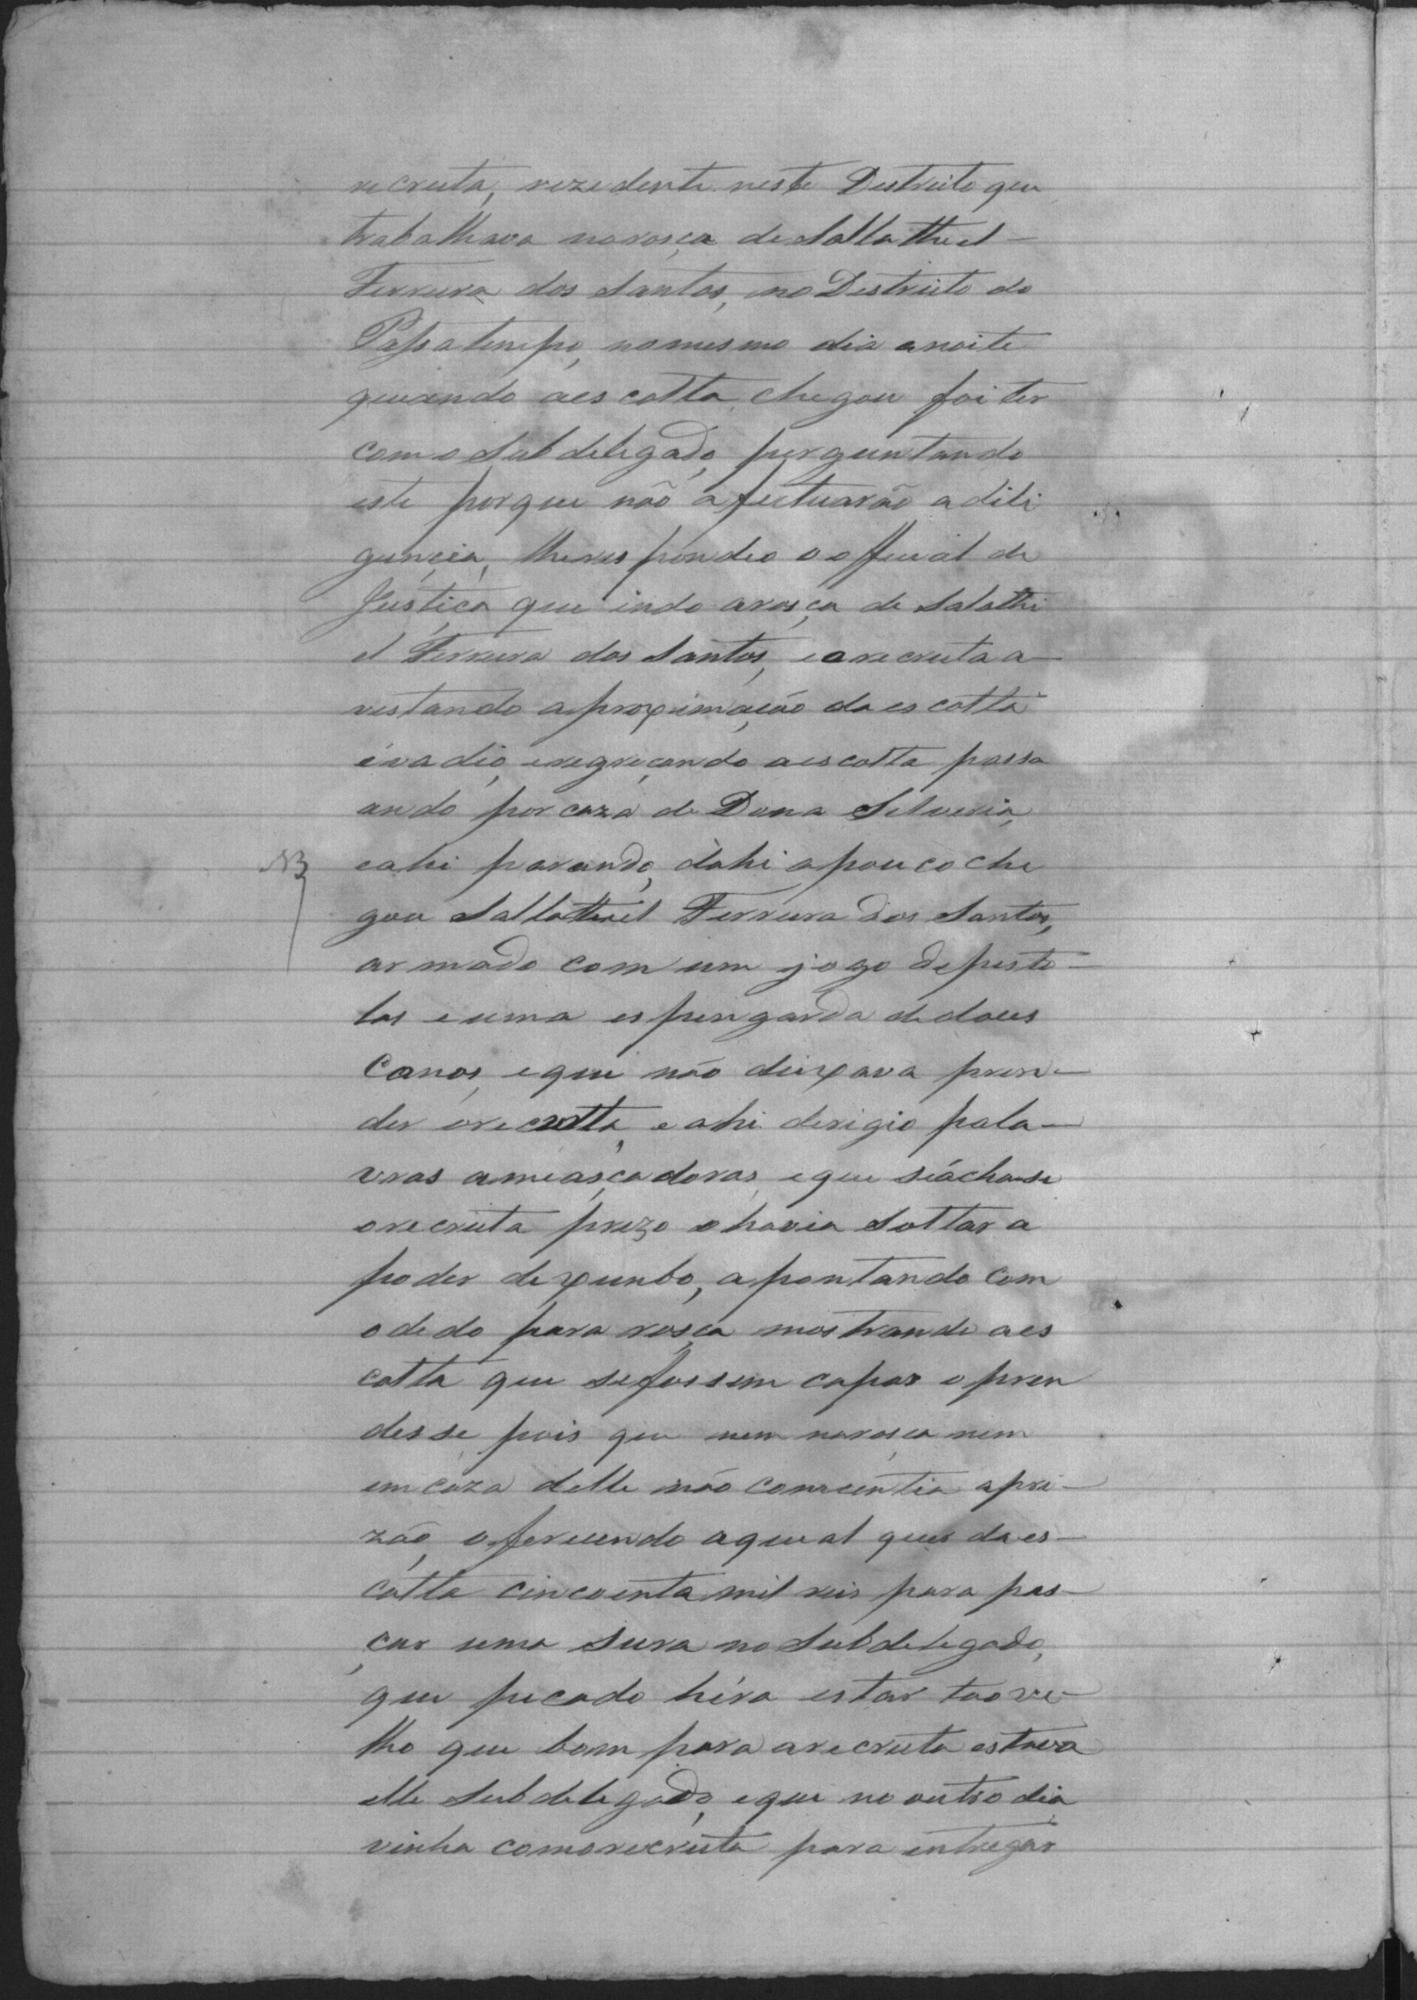 recruta, rezedente neste Destricto que
trabalhava naroça de Sallathiel
Ferreira dos Santos, no Destricto do
Passatempo, nomesmo dia anoite
quando aescolta chegou foi ter
como Subdelegado, perguntando
este porque não afectuarão a dili
gencia, lherespondeo o official de
Justiça que indo aroça de Salathi
el Ferreira dos Santos, e o recruta a-
vistando aproximação da escolta
evadio, eregreçando aescolta passa
ando por caza de Dona Silveria,
NB
eahi parando, dahi apouco che
gou Sallathiel Ferreira dos Santos,
armado com um jogo depisto-
las e uma espingarda de dous
Canos, eque não deixava pren-
der orecrutta, e ahi derigio pala-
vras ameaçadoras, eque siáchase
orecruta prezo ohavia Soltar a
poder dexumbo, apontando com
odedo para roça mostrando aes
colta que sefossem capas opren
desse pois que nem naroça nem
em caza delle não conscentia apri-
zão, oferecendo aqual quer da es-
colta cincoenta mil reis para pas-
çar uma Sura no Subdelegado,
que pecado héra estar tao ve-
lho que bom para arecruta estava
elle Subdelegado, eque no outro dia
vinha comorecruta para entregar